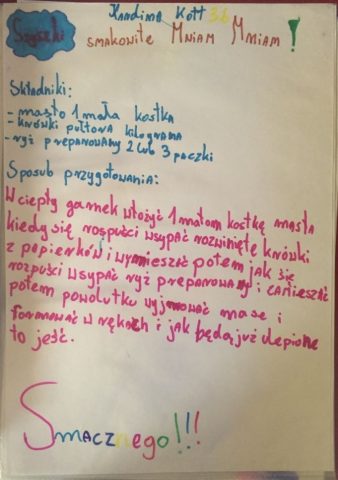 Kandima Kott 3b
Szyszki
smakowite Mniam Mniam!
Składniki:
- masło 1 mała kostka
- krówki pułtora kilograma
- ryż prepanowany 2 lub 3 paczki
Sposub przygotowania:
W ciepły garnek włożyć 1 małom kostkę masła
kiedy się rospuści wsypać rozwinięte krówki
z papierków i wymieszać potem jak się
rozpuści wsypać ryż prepanowany i zamieszać
potem powolutku wyjmować mase i
formować w rękach i jak będą już ulepione
to jeść.
Smacznego!!!